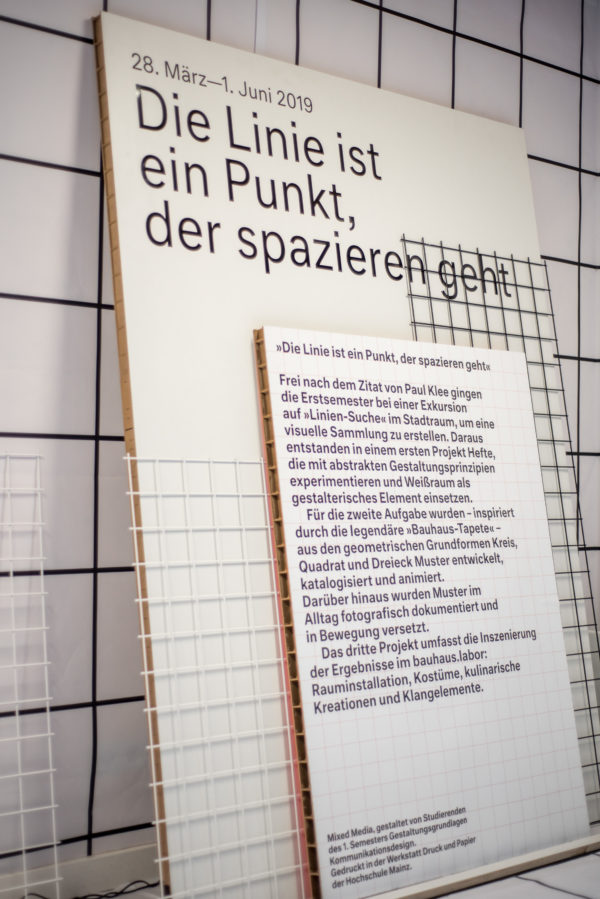 28. März—1. Juni 2019
Die Linie ist
ein Punkt,
der spazieren geht
»Die Linie ist ein Punkt, der spazieren geht«
Frei nach dem Zitat von Paul Klee gingen
die Erstsemester bei einer Exkursion
auf »Linien-Suche« im Stadtraum, um eine
visuelle Sammlung zu erstellen. Daraus
entstanden in einem ersten Projekt Hefte,
die mit abstrakten Gestaltungsprinzipien
experimentieren und Weißraum als
gestalterisches Element einsetzen.
Für die zweite Aufgabe wurden – inspiriert
durch die legendäre »Bauhaus-Tapete« –
aus den geometrischen Grundformen Kreis,
Quadrat und Dreieck Muster entwickelt,
katalogisiert und animiert.
Darüber hinaus wurden Muster im
Alltag fotografisch dokumentiert und
in Bewegung versetzt.
Das dritte Projekt umfasst die Inszenierung
der Ergebnisse im bauhaus.labor:
Rauminstallation, Kostüme, kulinarische
Kreationen und Klangelemente.
Mixed Media, gestaltet von Studierenden
des 1. Semesters Gestaltungsgrundlagen
Kommunikationsdesign.
Gedruckt in der Werkstatt Druck und Papier
der Hochschule Mainz.